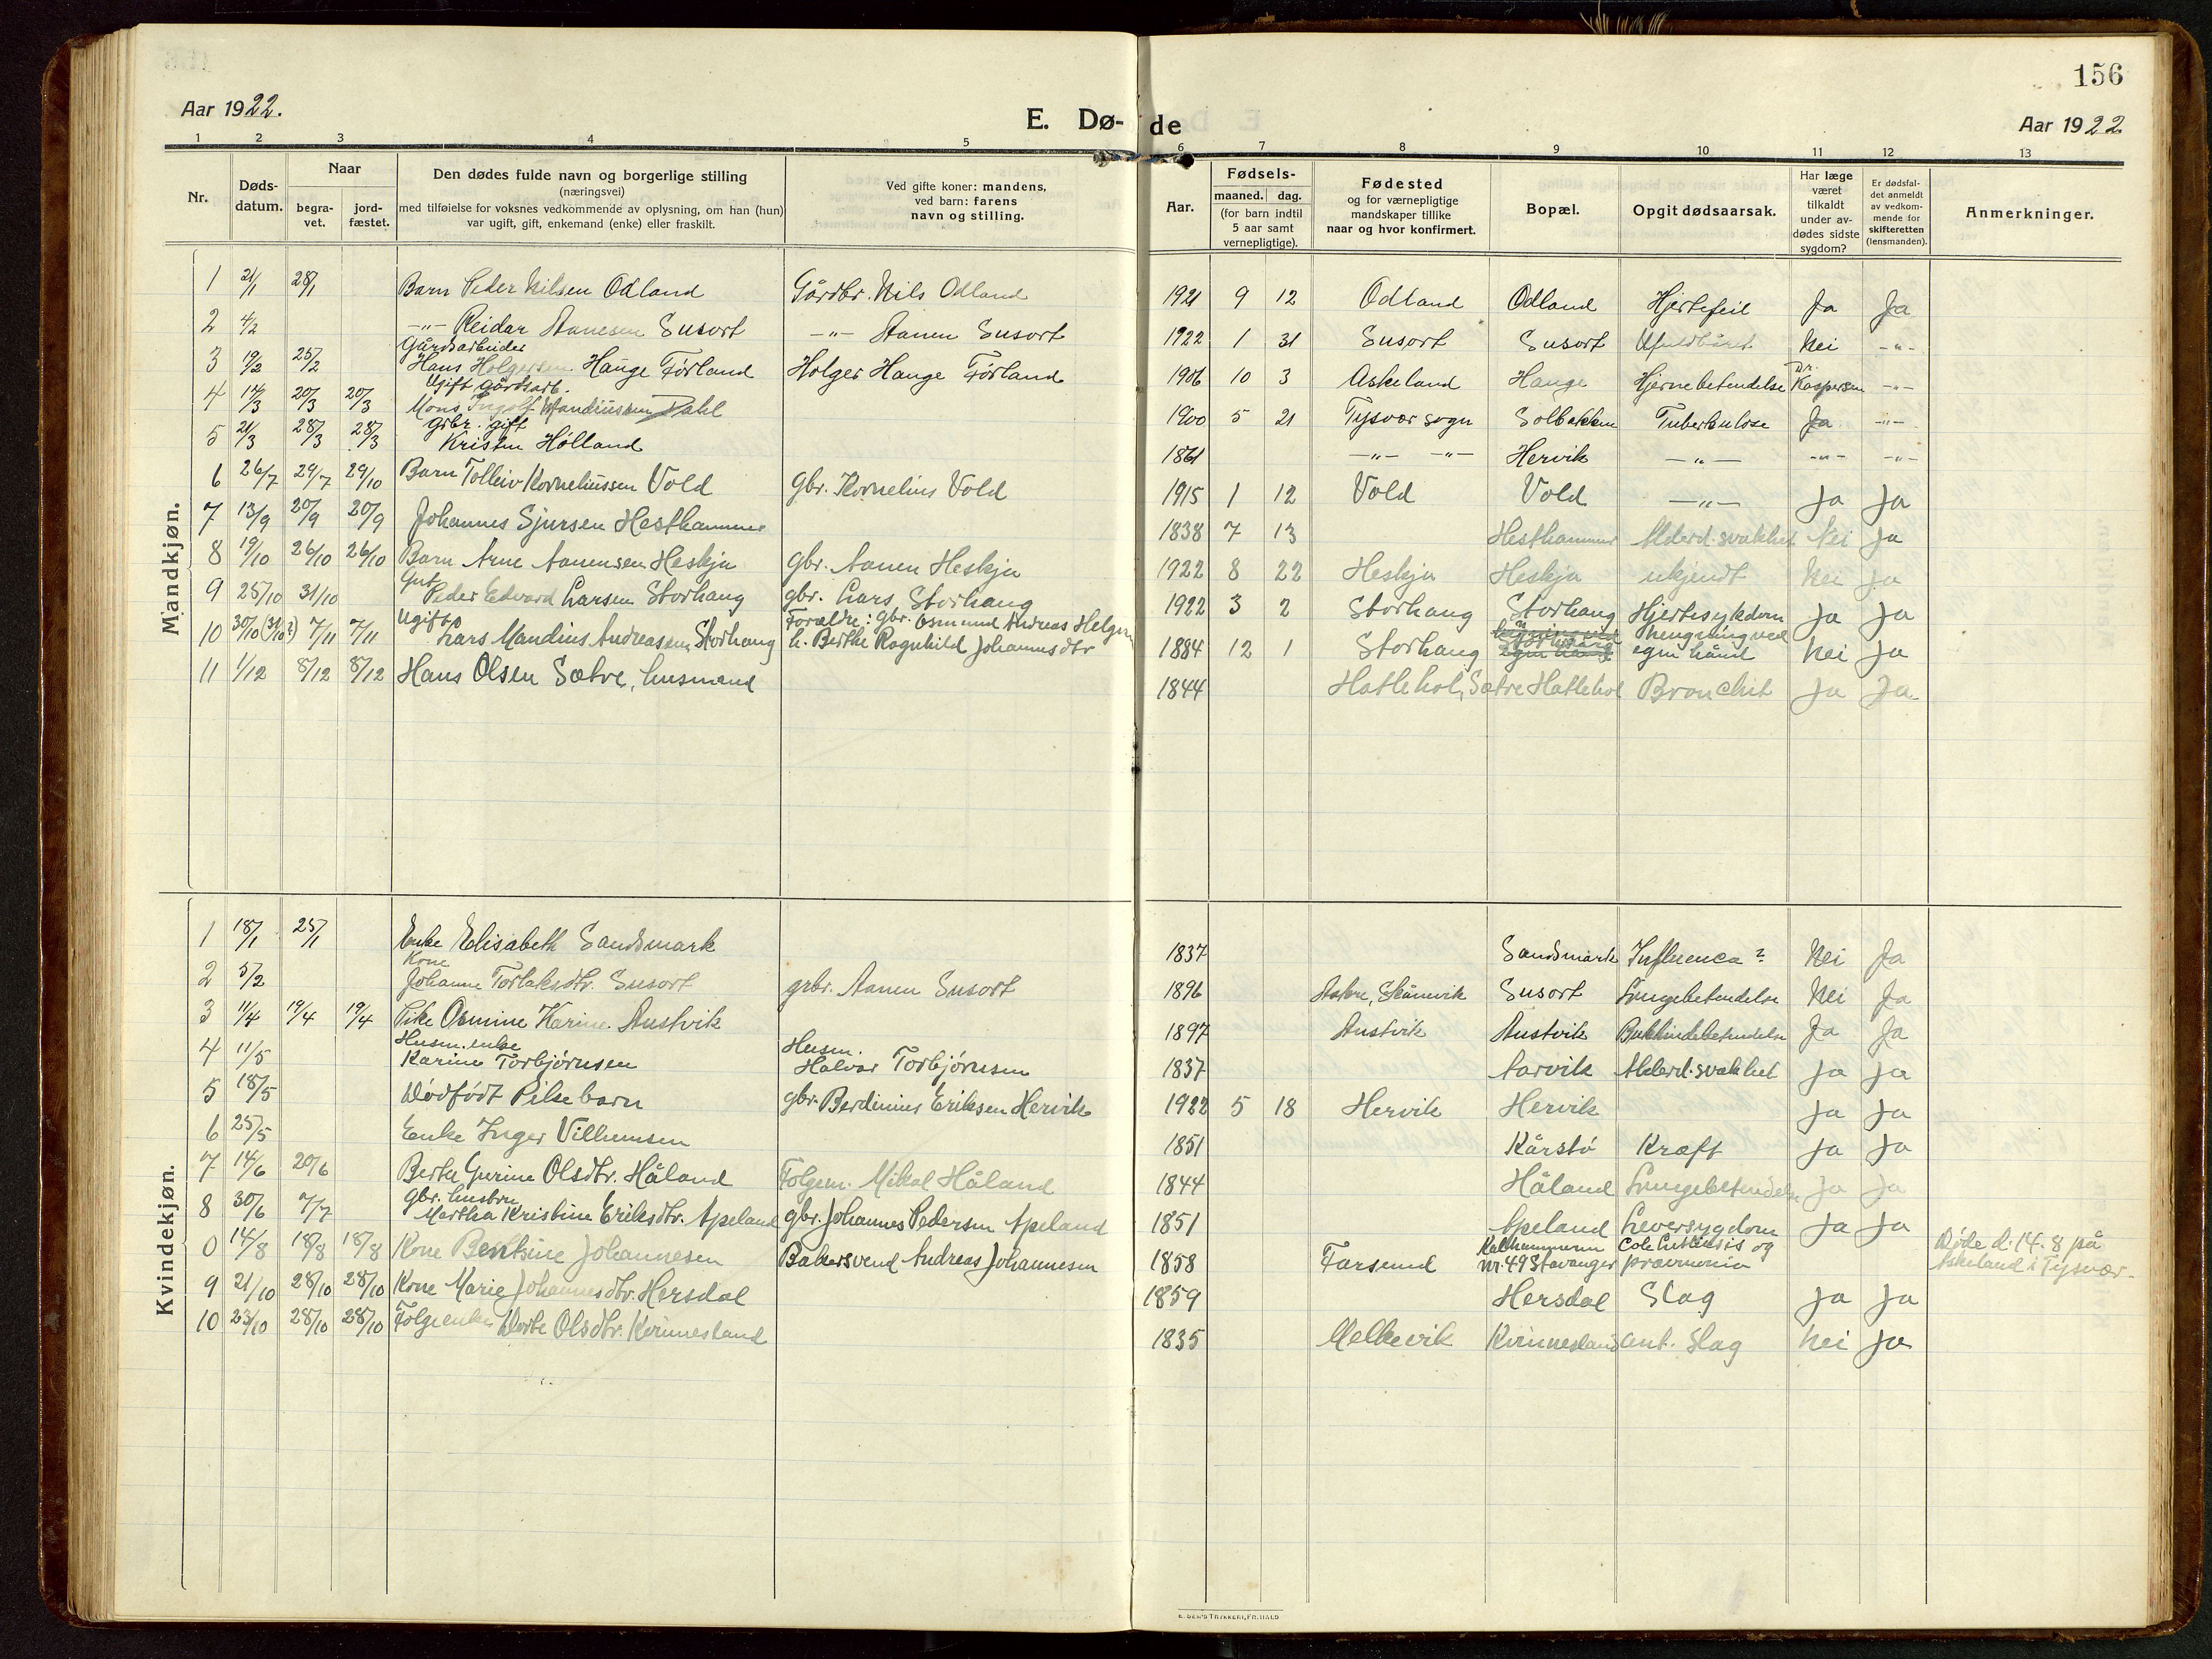 156
Aar 1922.
E. Dø-
de
Aar 1922
1 2 3 4 5 6 7 8 9 10 11 12 13
Nr.
Døds-
datum.
Naar
begra-
vet.
jord-
fæstet.
Den dødes fulde navn og borgerlige stilling
(næringsvei)
med tilføielse for voksnes vedkommende av oplysning, om han (hun)
var ugift, gift, enkemand (enke) eller fraskilt.
Ved gifte koner: mandens,
ved barn: farens
navn og stilling.
Aar.
Fødsels-
maaned. dag.
(for barn indtil
5 aar samt
vernepligtige).
Fødested
og for værnepligtige
mandskaper tillike
naar og hvor konfirmert.
Bopæl.
Opgit dødsaarsak.
Har læge
været
tilkaldt
under av-
dødes sidste
sygdom?
Er dødsfal-
det anmeldt
av vedkom-
mende for
skifteretten
(lensmanden).
Anmerkninger.
Mandkjøn.
1 21/1 28/1 Barn Peder Nilsen Odland Gårdbr. Nils Odland 1921 9 12 Odland Odland Hjertefeil Ja Ja
2 4/2 -"- Reidar Aanesen Susort -"- Aanen Susort 1922 1 31 Susort Susort Nei -"-
Gårdsarbeider
3 19/2 25/2 Hans Holgersen Hauge Førland Holger Hauge Førland 1906 10 3 Askeland Hauge Hjernebetendelse Dr. Kaspersen -"-
Ugift gårdsarb.
4 14/3 20/3 20/3 Mons Ingolf Mandiussen Dahl 1900 5 21 Tysvær sogn Solbakken Tuberkulose Ja -"-
grbr. gift
5 21/3 28/3 28/3 Kristen Hølland 1861 -"- -"- Hervik -"- -"- -"-
6 26/7 29/7 29/10 Barn Tolleiv Korneliussen Vold gbr. Kornelius Vold 1915 1 12 Vold Vold -"- Ja Ja
7 13/9 20/9 20/9 Johannes Sjursen Hesthammer 1838 7 13 Hesthammer Alderd.svakhet Nei Ja
8 19/10 26/10 26/10 Barn Arne Aanensen Heskja gbr. Aanen Heskja 1922 8 22 Heskja Heskja ukjendt Nei Ja
Gut
9 25/10 31/10 Peder Edvard Larsen Storhaug gbr. Lars Storhaug 1922 3 2 Storhaug Storhaug Hjertesykdom Ja Ja
Ugift Forældre: gbr. Osmund Andreas Helgesen
10 30/10 (31/10?) 7/11 7/11 Lars Mandius Andreassen Storhaug h. Berthe Ragnhild Johannesdtr 1884 12 1 Storhaug Storhaug hengning ved egen hånd Nei Ja
11 1/12 8/12 8/12 Hans Olsen Sætre, husmand 1844 Hatlehol, Sætre Hatlehol Bronchit Ja Ja
Kvindekjøn.
1 18/1 25/1 Enke Elisabeth Sandsmark 1837 Sandsmark Influenca? Nei Ja
Kone
2 5/2 Johanne Torlaksdtr. Susort grbr. Aanen Susort 1896 Aakre, Skånevik Susort Lungebetendelse Nei Ja
3 11/4 19/4 19/4 Pike Osmine Karine Austvik 1897 Austvik Austvik Bukhindebetendelse Ja Ja
Husm. enke Husm.
4 11/5 Karine Torbjørnsen Halvor Torbjørnsen 1837 Aarvik Alderd.svakhet Ja Ja
5 18/5 Dødfødt Pikebarn gbr. Berdinius Eriksen Hervik 1922 5 18 Hervik Hervik Ja Ja
6 25/5 Enke Inger Vilhemsen 1851 Kårstø Kræft Ja Ja
7 14/6 20/6 Berta Gurine Olsdtr. Håland Folgem. Mikal Håland 1844 Håland Lungebetendelse Ja Ja
gbr. hustru
8 30/6 7/7 Martha Kristine Eriksdtr. Apeland gbr. Johannes Pedersen Apeland 1851 Apeland Leversygdom Ja Ja
0 14/8 18/8 18/8 Kone Bentsine Johannesen Bakersvend Andreas Johannesen 1858 Farsund Kalhammeren nr. 49 Stavanger og Døde d. 14. 8 på
Askeland i Tysvær.
9 21/10 28/10 28/10 Kone Marie Johannesdtr. Hersdal 1859 Hersdal Slag Ja Ja
10 23/10 28/10 28/10 Folgeenke Dorte Olsdtr. Kvinnesland 1835 Melkevik Kvinnesland ant. Slag Nei Ja